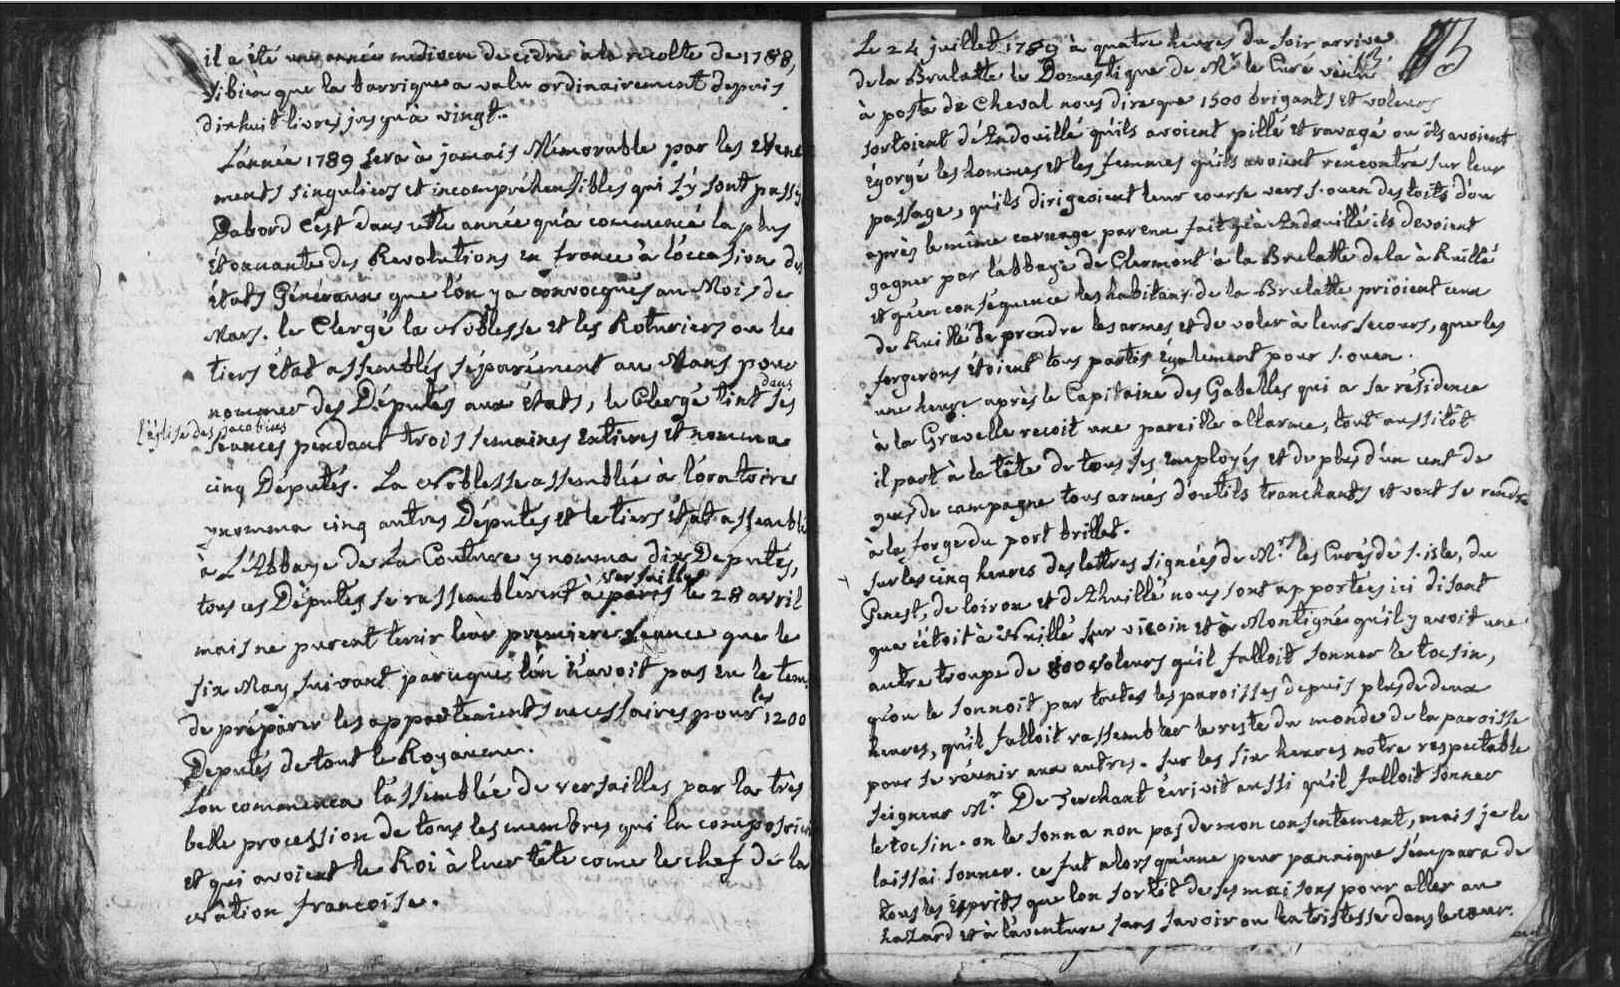 il a été une année mediocre de cidre à la récolte de 1788,
si bien que la barrique a valu ordinairement depuis
dix huit livres jusqu'à vingt.
L'année 1789 sera à jamais Mémorable par les Evene
ments singuliers et incompréhensibles qui s'y sont passés
Dabord c'est dans cette année qu'a commencé la plus
étonnante des Revolutions en france à l'occasion des
états Généraux que l'on y a convoqués au Mois de
Mars. le Clergé la Noblesse et les Roturiers ou le
tiers état assemblés séparément au Mans pour
nommer des Députés aux états, le Clergé tint ses
dans
l'église des jacobins
séances pendant trois semaines entieres et nomma
cinq Députés. La Noblesse assemblée à l'oratoire
y nomma cinq autres Députés et le tiers état assemblé
à L'Abbaye de La Couture y nomma dix Députés,
versailles
tous ces Députés se rassemblèrent à paris le 28 avril
mais ne purent tenir leur premiere séance que le
six May suivant parceque l'on n'avoit pas eu le tems
les
de préparer les appartements necessaires pour 1200
Députés de tout le Royaume.
L'on commença l'assemblée de versailles par la très
belle procession de tous les membres qui la composoient
et qui avoient le Roi à leur tête come le chef de la
nation francoise.
Le 24 juillet 1789 à quatre heures du soir arrive
de la Brulatte le Domestique de Mr le Curé venu
à poste de Cheval nous dire que 1500 brigants et voleurs
sortoient d'Andouillé qu'ils avoient pillé et ravagé ou ils avoient
égorgé les hommes et les femmes qu'ils avoient rencontré sur leur
passage, qu'ils dirigeoient leur course vers s. ouen des toits d'ou
après le même carnage pareil fait qu'à Andouillé ils devoient
gagner par l'abbaye de Clermont à la Brulatte de la à Ruillé
et qu'en conséquence les habitans de la Brulatte prioient ceux
de Ruillé de prendre les armes et de voler à leur secours, que les
forgerons étoient tous partis également pour s. ouen.
une heure après le Capitaine des Gabelles qui a sa résidence
à la Gravelle recoit une pareille allarme, tout aussitôt
il part à la tête de tous ses employés et de plus d'un cent de
gens de campagne tous armés d'outils tranchants et vont se rendre
à la forge du port brillet.
sur les cinq heures des lettres signées de Mrs les Curés de s. isle, du
Genest, de loiron et d'Ahuillé nous sont apportées ici disant
que c'étoit à Nuillé sur vicoin et à Montigné qu'il y avoit une
autre troupe de 800 voleurs qu'il falloit sonner le tocsin,
qu'on le sonnoit par toutes les paroisses depuis plus de deux
heures, qu'il falloit rassembler le reste du monde de la paroisse
pour se réunir aux autres. sur les six heures notre respectable
seigneur Mr De Terchant écrivit aussi qu'il falloit sonner
le tocsin. on le sonna non pas de mon consentement, mais je le
laissai sonner. ce fut alors qu'une peur pannique s'empara de
tous les esprits que l'on sortit de ses maisons pour aller au
hazard et à l'aventure sans savoir ou la tristesse dans le cœur.